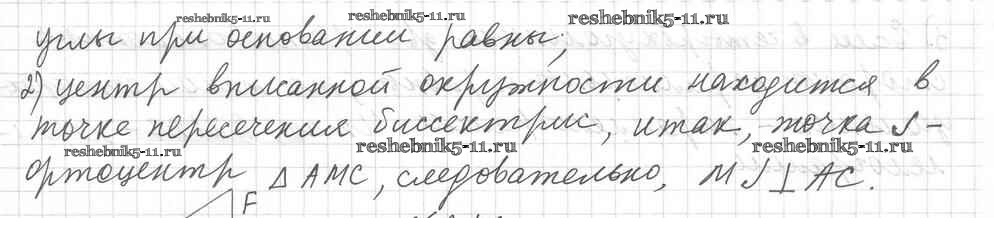 reshebnik5-11.ru reshebnik5-11.ru reshebnik5-11.ru
углы при основании равны;
2) центр вписанной окружности находится в
точке пересечения биссектрис, итак, точка J -
reshebnik5-11.ru reshebnik5-11.ru
ортоцентр △ AMC, следовательно, MJ ⊥ AC.
F